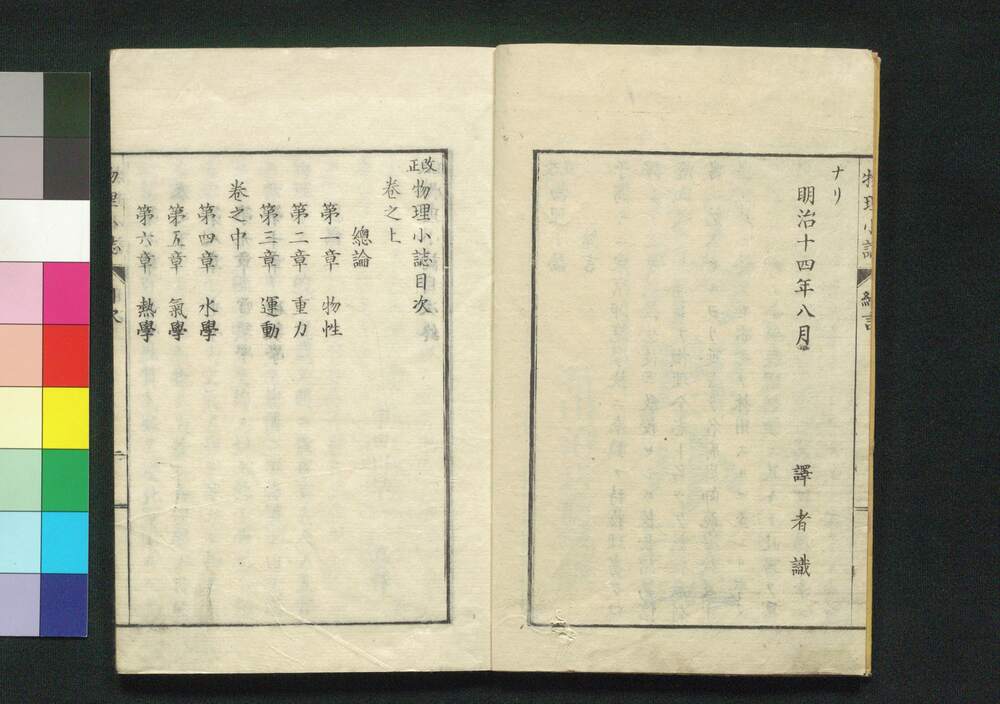 ナリ
明治十四年八月
譯者識
改正物理小誌目次
卷之上
總論
第一章 物性
第二章 重力
第三章 運動
卷之中
第四章 水學
第五章 氣學
第六章 熱學